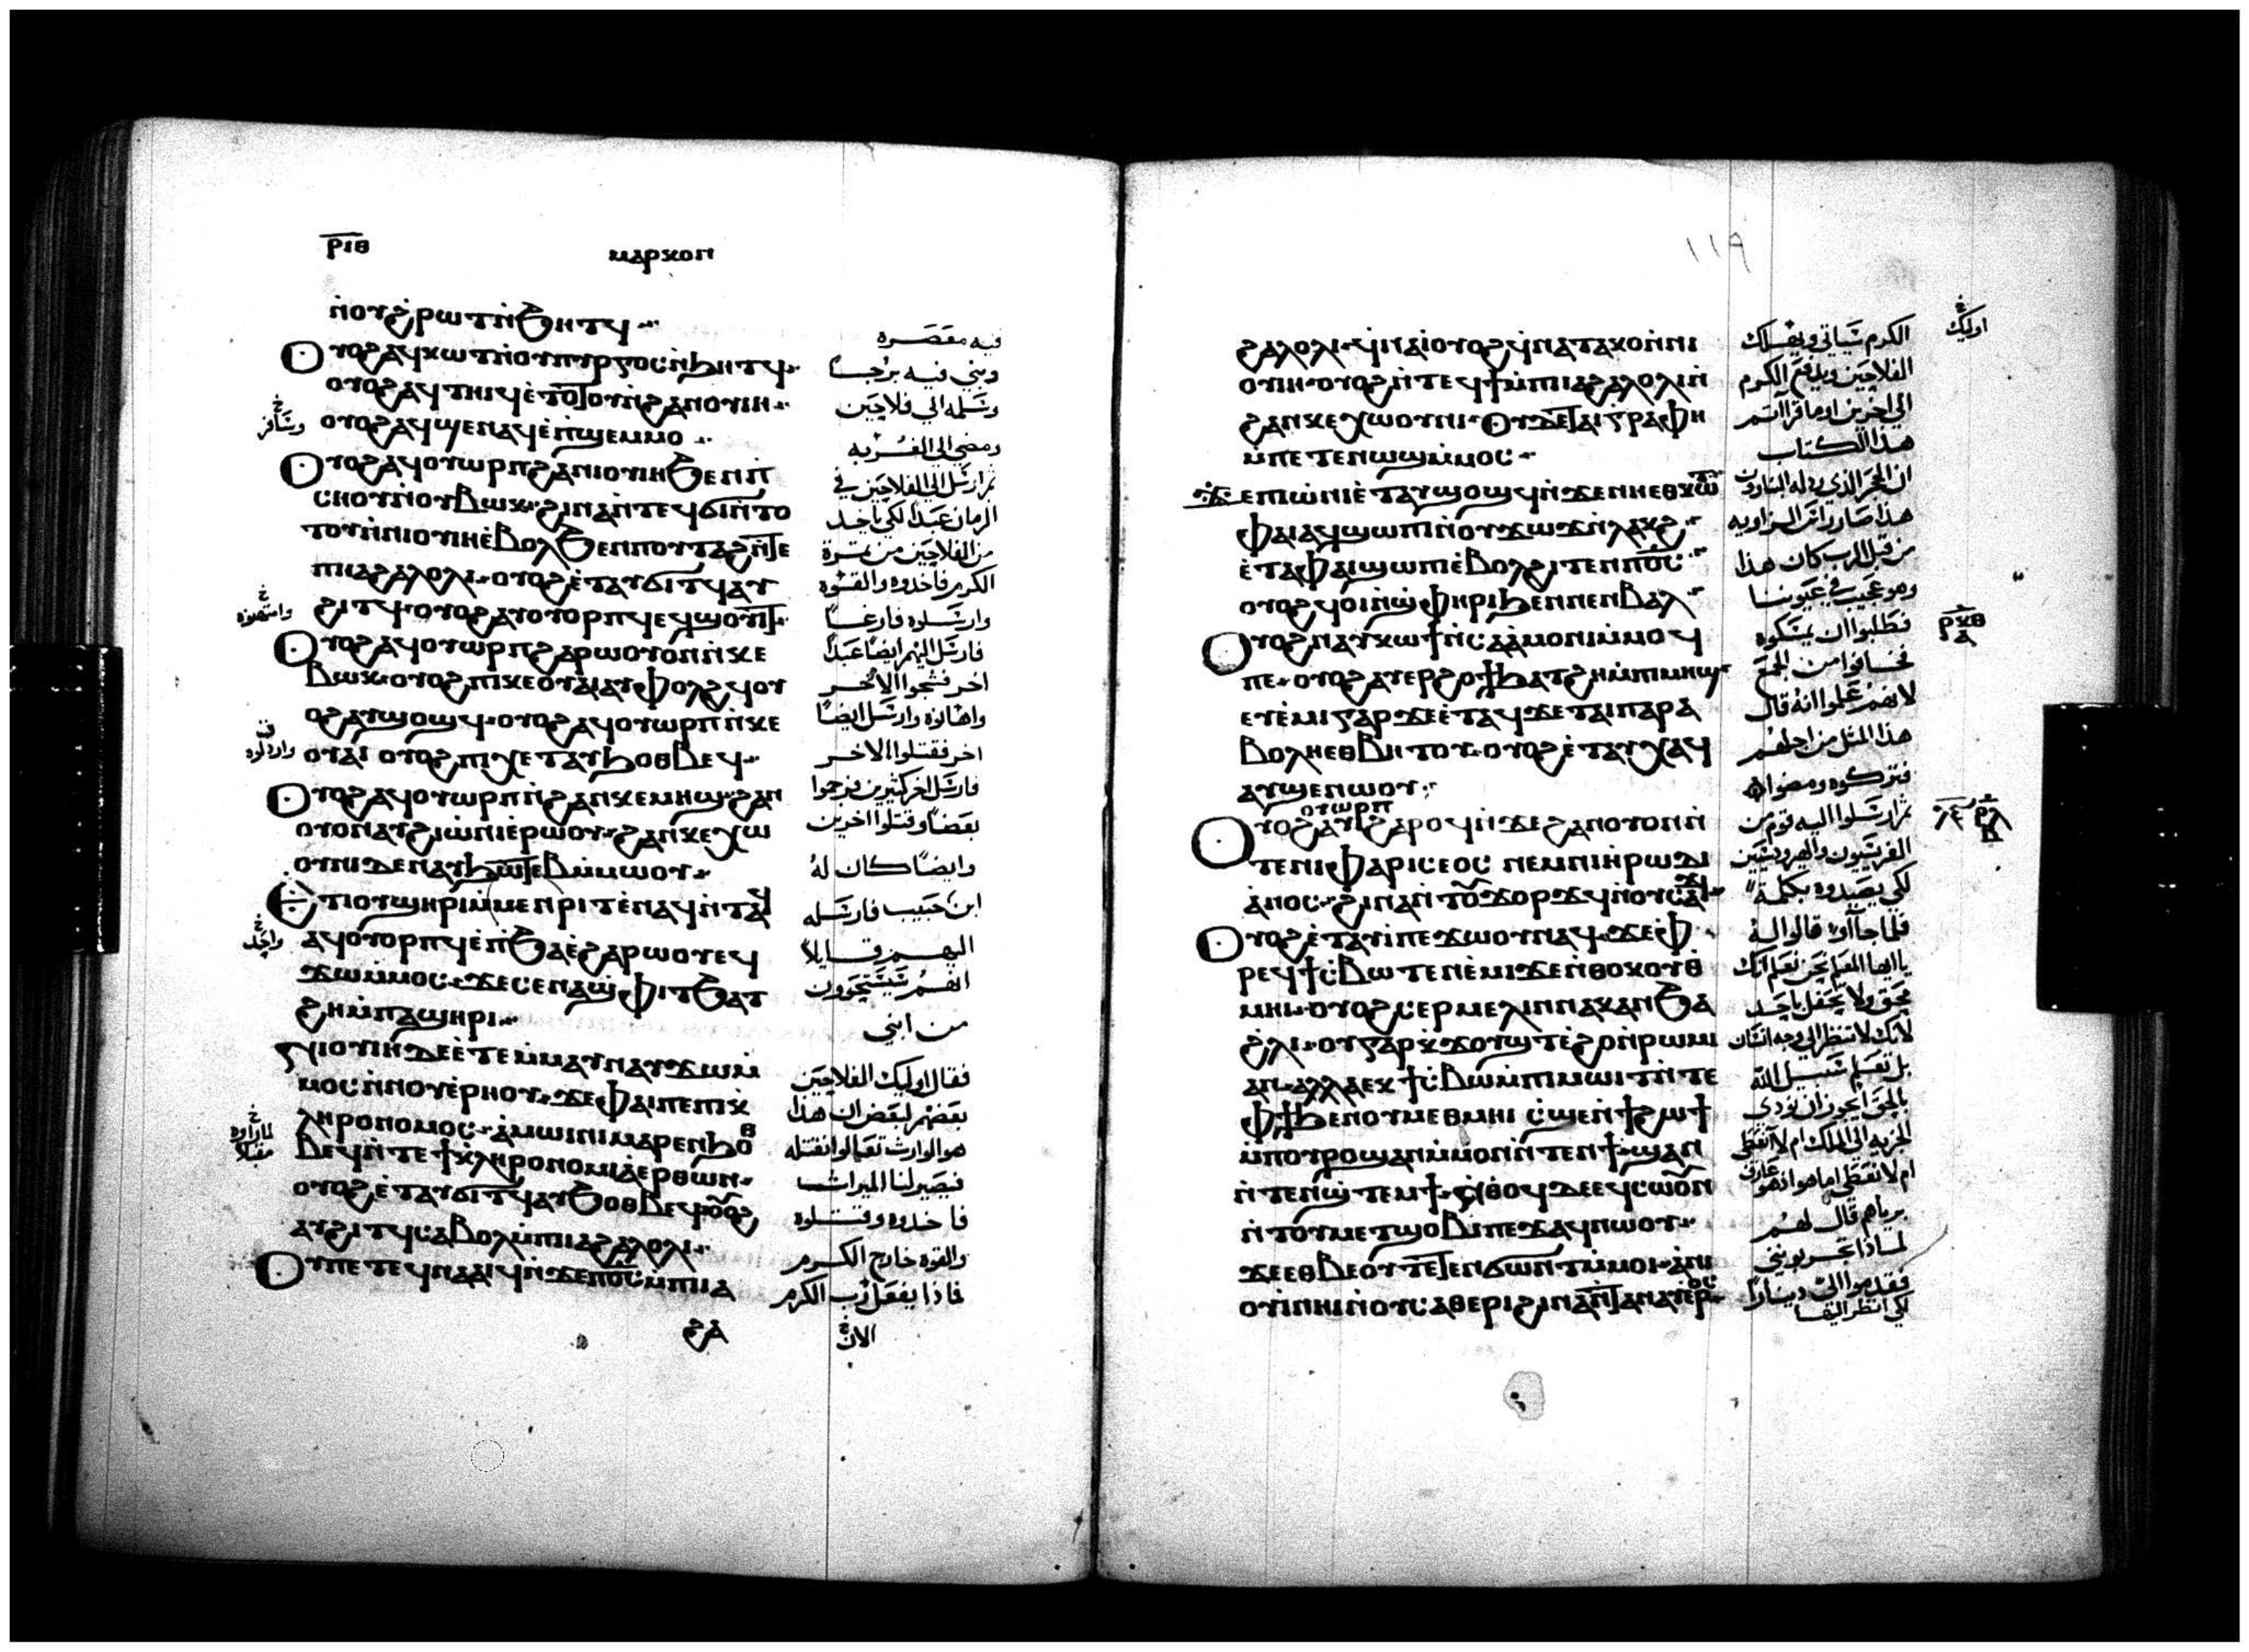 ⲣⲓⲑ
ⲙⲁⲣⲕⲟⲛ
ⲛ̀ⲟⲩϩⲣⲱⲧ ⲛ̀ϧⲏⲧϥ
ⲟⲩⲟϩ ⲁϥⲕⲱⲧ ⲛ̀ⲟⲩⲡⲩⲣⲅⲟⲥ ⲛ̀ϧⲏⲧϥ
ⲟⲩⲟϩ ⲁϥⲧⲏⲓϥ ⲉ̀ⲧⲟⲧⲟⲩ ⲛ̀ϩⲁⲛⲟⲩⲓⲏ
ⲟⲩⲟϩ ⲁϥϣⲉⲛⲁϥ ⲉ̀ⲡϣⲉⲙⲙⲟ
ⲟⲩⲟϩ ⲁϥⲟⲩⲱⲣⲡ ϩⲁⲛⲓⲟⲩⲓⲏ ϧⲉⲛⲡ
ⲥⲏⲟⲩ ⲛ̀ⲟⲩⲃⲱⲕ ϩⲓⲛⲁ ⲛ̀ⲧⲉϥϭⲓ ⲛ̀ⲧⲟ
ⲧⲟⲩ ⲛ̀ⲛⲓⲟⲩⲓⲏ ⲉ̀ⲃⲟⲗϧⲉⲛ ⲡⲟⲩⲧⲁϩ ⲛ̀ⲧⲉ
ⲡⲓⲁϩⲁⲗⲟⲗⲓ ⲟⲩⲟϩ ⲉ̀ⲧⲁⲩϭⲓⲧϥ ⲁⲩ
ϩⲓⲧϥ ⲟⲩⲟϩ ⲁⲩⲟⲩⲟⲣⲡϥ ⲉϥϣⲟⲩⲓⲧ
ⲟⲩⲟϩ ⲁϥⲟⲩⲱⲣⲡ ϩⲁⲣⲱⲟⲩ ⲟⲛ ⲛ̀ⲕⲉ
ⲃⲱⲕ ⲟⲩⲟϩ ⲡⲓⲕⲉⲟⲩⲁⲓ ⲁⲩⲫⲟⲗϩϥ ⲟⲩ
ⲟϩ ⲁⲩϣⲟϣϥ ⲟⲩⲟϩ ⲁϥⲟⲩⲱⲣⲡ ⲛ̀ⲕⲉ
ⲟⲩⲁⲓ ⲟⲩⲟϩ ⲡⲓⲭⲉⲧ ⲁⲩϧⲟⲑⲃⲉϥ
ⲟⲩⲟϩ ⲁϥⲟⲩⲱⲣⲡ ⲛ̀ϩⲁⲛⲕⲉⲙⲏϣ ϩⲁⲛ
ⲟⲩⲟⲛ ⲁⲩϩⲓⲱⲛⲓ ⲉ̀ⲣⲱⲟⲩ ϩⲁⲛⲕⲉⲭⲱ
ⲟⲩⲛⲓ ⲇⲉ ⲛⲁⲩϧⲱⲧⲉⲃ ⲙ̀ⲙⲱⲟⲩ
ⲉⲧⲓ ⲟⲩϣⲏⲣⲓ ⲙ̀ⲙⲉⲛⲣⲓⲧ ⲉ̀ⲛⲁϥⲛ̀ⲧⲁϥ
ⲁϥⲟⲩⲟⲣⲡϥ ⲉ̀ⲡϧⲁⲉ̀ ϩⲁⲣⲱⲟⲩ ⲉϥ
ϫⲱⲙ̀ⲙⲟⲥ ϫⲉ ⲥⲉⲛⲁϣ̀ⲫⲓⲧ ϧⲁⲧ
ϩⲏ ⲙ̀ⲡⲁϣⲏⲣⲓ
ⲛⲓⲟⲩⲓⲏ ⲇⲉ ⲉ̀ⲧⲉⲙ̀ⲙⲁⲩ ⲛⲁⲩϫⲱⲙ̀
ⲙⲟⲥ ⲛ̀ⲛⲟⲩⲉ̀ⲣⲏⲟⲩ ϫⲉ ⲫⲁⲓ ⲡⲉ ⲡⲓⲕ̀
ⲗⲏⲣⲟⲛⲟⲙⲟⲥ ⲁ̀ⲙⲱⲓⲛⲓ ⲙⲁⲣⲉⲛϧⲟⲑ
ⲃⲉϥ ⲛ̀ⲧⲉϯⲕ̀ⲗⲏⲣⲟⲛⲟⲙⲓⲁ ⲉⲣⲑⲱⲛ
ⲟⲩⲟϩ ⲉ̀ⲧⲁⲩϭⲓⲧϥ ⲁⲩϧⲟⲑⲃⲉϥ ⲟⲩⲟϩ
ⲁⲩϩⲓⲧϥ ⲥⲁⲃⲟⲗ ⲙ̀ⲡⲓⲁϩⲁⲗⲟⲗⲓ
ⲟⲩ ⲡⲉⲧⲉϥⲛⲁⲁⲓϥ ⲛ̀ϫⲉ ⲡⲟ̅ⲥ̅ ⲙ̀ⲡⲓⲁ
ϩⲁ
فيه معصره
وبني فيه برجا
وسلمه الي فلاحين
ومضي الي الغربه
وسافر
ثم ارسل الي الفلاحين في
الزمان عبدا لكي ياخد
من الفلاحين من ثمرة
الكرم فاخدوه والقوه
وارسلوه فارغا
فارسل اليهم ايضا عبدا
اخر فشجوا الاخر
واهانوه وارسل ايضا
اخر فقتلوا الاخر
فارسل اخر كثيرين فرجموا
بعضا وقتلوا اخرين
وايضا كان له
ابن حبيب فارسله
اليهم قايلا
انهم يستحيوون
من ابني
فقال اوليك الفلاحين
بعضهم لبعض ان هذا
هو الوارث تعالوا نقتله
فيصير لنا الميراث
فاخدوه وقتلوه
والقوه خارج الكرم
فماذا يفعل رب الكرم
الان
١١٩
ϩⲁⲗⲟⲗⲓ ϥⲛⲁⲓ ⲟⲩⲟϩ ϥⲛⲁⲧⲁⲕⲟ ⲛ̀ⲛⲓ
ⲟⲩⲓⲏ ⲟⲩⲟϩ ⲛ̀ⲧⲉϥϯ ⲙ̀ⲡⲓⲁϩⲁⲗⲟⲗⲓ ⲛ̀
ϩⲁⲛⲕⲉⲭⲱⲟⲩⲛⲓ ⲟⲩⲇⲉ ⲧⲁⲓⲅⲣⲁⲫⲏ
ⲙ̀ⲡⲉⲧⲉⲛⲱϣ ⲙ̀ⲙⲟⲥ
ϫⲉ ⲡⲓⲱ̀ⲛⲓ ⲉ̀ⲧⲁⲩϣⲟϣϥ ⲛ̀ϫⲉ ⲛⲏⲉⲑⲕⲱⲧ
ⲫⲁⲓ ⲁϥϣⲱⲡⲓ ⲛ̀ⲟⲩϫⲱϫ ⲛ̀ⲗⲁⲕϩ
ⲉ̀ⲧⲁ ⲫⲁⲓ ϣⲱⲡⲓ ⲉ̀ⲃⲟⲗϩⲓⲧⲉⲛ ⲡⲟ̅ⲥ̅
ⲟⲩⲟϩ ϥⲟⲓ ⲛ̀ϣ̀ⲫⲏⲣⲓ ϧⲉⲛ ⲛⲉⲛⲃⲁⲗ
ⲟⲩⲟϩ ⲛⲁⲩⲕⲱϯ ⲛ̀ⲥⲁ ⲁ̀ⲙⲟⲛⲓ ⲙ̀ⲙⲟϥ
ⲡⲉ ⲟⲩⲟϩ ⲁⲩⲉⲣϩⲟϯ ϧⲁⲧϩⲏ ⲙ̀ⲡⲓⲙⲏϣ
ⲉⲩⲉ̀ⲙⲓ ⲅⲁⲣ ϫⲉ ⲉ̀ⲧⲁϥϫⲉ ⲧⲁⲓⲡⲁⲣⲁ
ⲃⲟⲗⲏ ⲉⲑⲃⲏⲧⲟⲩ ⲟⲩⲟϩ ⲉ̀ⲧⲁⲩⲭⲁϥ
ⲁⲩϣⲉⲛⲱⲟⲩ
ⲟⲩⲱⲣⲡ
ⲟⲩⲟϩ ⲁⲩ ϩⲁⲣⲟϥ ⲛ̀ϫⲉ ϩⲁⲛⲟⲩⲟⲛ ⲛ̀
ⲧⲉ ⲛⲓⲫⲁⲣⲓⲥⲉⲟⲥ ⲛⲉⲙ ⲛⲓⲏ̀ⲣⲱⲇⲓ
ⲁⲛⲟⲥ ϩⲓⲛⲁ ⲛ̀ⲧⲟⲩϫⲟⲣϫϥ ⲛ̀ⲟⲩⲥⲁϫⲓ
ⲟⲩⲟϩ ⲉ̀ⲧⲁⲩⲓ̀ ⲡⲉϫⲱⲟⲩ ⲛⲁϥ ϫⲉ ⲫ
ⲣⲉϥϯⲥ̀ⲃⲱ ⲧⲉⲛⲉ̀ⲙⲓ ϫⲉ ⲛ̀ⲑⲟⲕ ⲟⲩⲑ̀
ⲙⲏⲓ ⲟⲩⲟϩ ⲥⲉⲣⲙⲉⲗⲓⲛ ⲛⲁⲕ ⲁⲛ ϧⲁ
ϩ̀ⲗⲓ ⲟⲩ ⲅⲁⲣ ⲕ̀ϫⲟⲩϣⲧ ⲉ̀ϩⲟ ⲛ̀ⲣⲱⲙⲓ
ⲁⲛ ⲁⲗⲗⲁ ⲉⲕϯⲥ̀ⲃⲱ ⲙ̀ⲡⲓⲙⲱⲓⲧ ⲛ̀ⲧⲉ
ⲫϯ ϧⲉⲛ ⲟⲩⲙⲉⲑⲙⲏⲓ ⲥ̀ϣⲉ ⲛ̀ϯϩⲱϯ
ⲙ̀ⲡⲟⲩⲣⲟ ϣⲁⲛ ⲙ̀ⲙⲟⲛ ⲛ̀ⲧⲉⲛϯ ϣⲁⲛ
ⲛ̀ⲧⲉⲛϣ̀ⲧⲉⲙϯ ⲛ̀ⲑⲟϥ ⲇⲉ ⲉϥⲥⲱⲟⲩⲛ
ⲛ̀ⲧⲟⲩⲙⲉⲧϣⲟⲃⲓ ⲡⲉϫⲁϥ ⲛⲱⲟⲩ
ϫⲉ ⲉⲑⲃⲉⲟⲩ ⲧⲉⲧⲉⲛϭⲱⲛⲧ ⲙ̀ⲙⲟⲓ ⲁ̀ⲛⲓ
ⲟⲩⲓ̀ ⲛⲏⲓ ⲛ̀ⲟⲩⲥⲁⲑⲉⲣⲓ ϩⲓⲛⲁ ⲛ̀ⲧⲁⲛⲁⲩ ⲉ̀ⲣⲟⲥ
اوليك
الكرم سياتي ويهلك
الفلاحين ويدفع الكرم
الي اخرين اوما قراتم
هذا الكتاب
ان الحجر الذي رذله البناوون
هذا صار راس الزاويه
من قبل الرب كان هذا
وهو عجيب في عيوننا
فطلبوا ان يمسكوه
فخافوا من الجمع
لانهم علموا انه قال
هذا المثل من اجلهم
فتركوه ومضوا
ثم ارسلوا اليه قوم من
الفريسيون والهروديسيين
لكي يصيدوه بكلمة
فلما جاآوا قالوا له
يا ايها المعلم نحن نعلم انك
محق ولا تحفل باحد
لانك لا تنظر الي وجه انسان
بل تعلم سبيل الله
بالحق ايجوز ان نودي
الجزيه الي الملك ام لا انعطي
ام لا نعطي اما هو
برياهم قال لهم
لماذا تجربونني
فقدموا الي دينارا
لكي انظر اليها